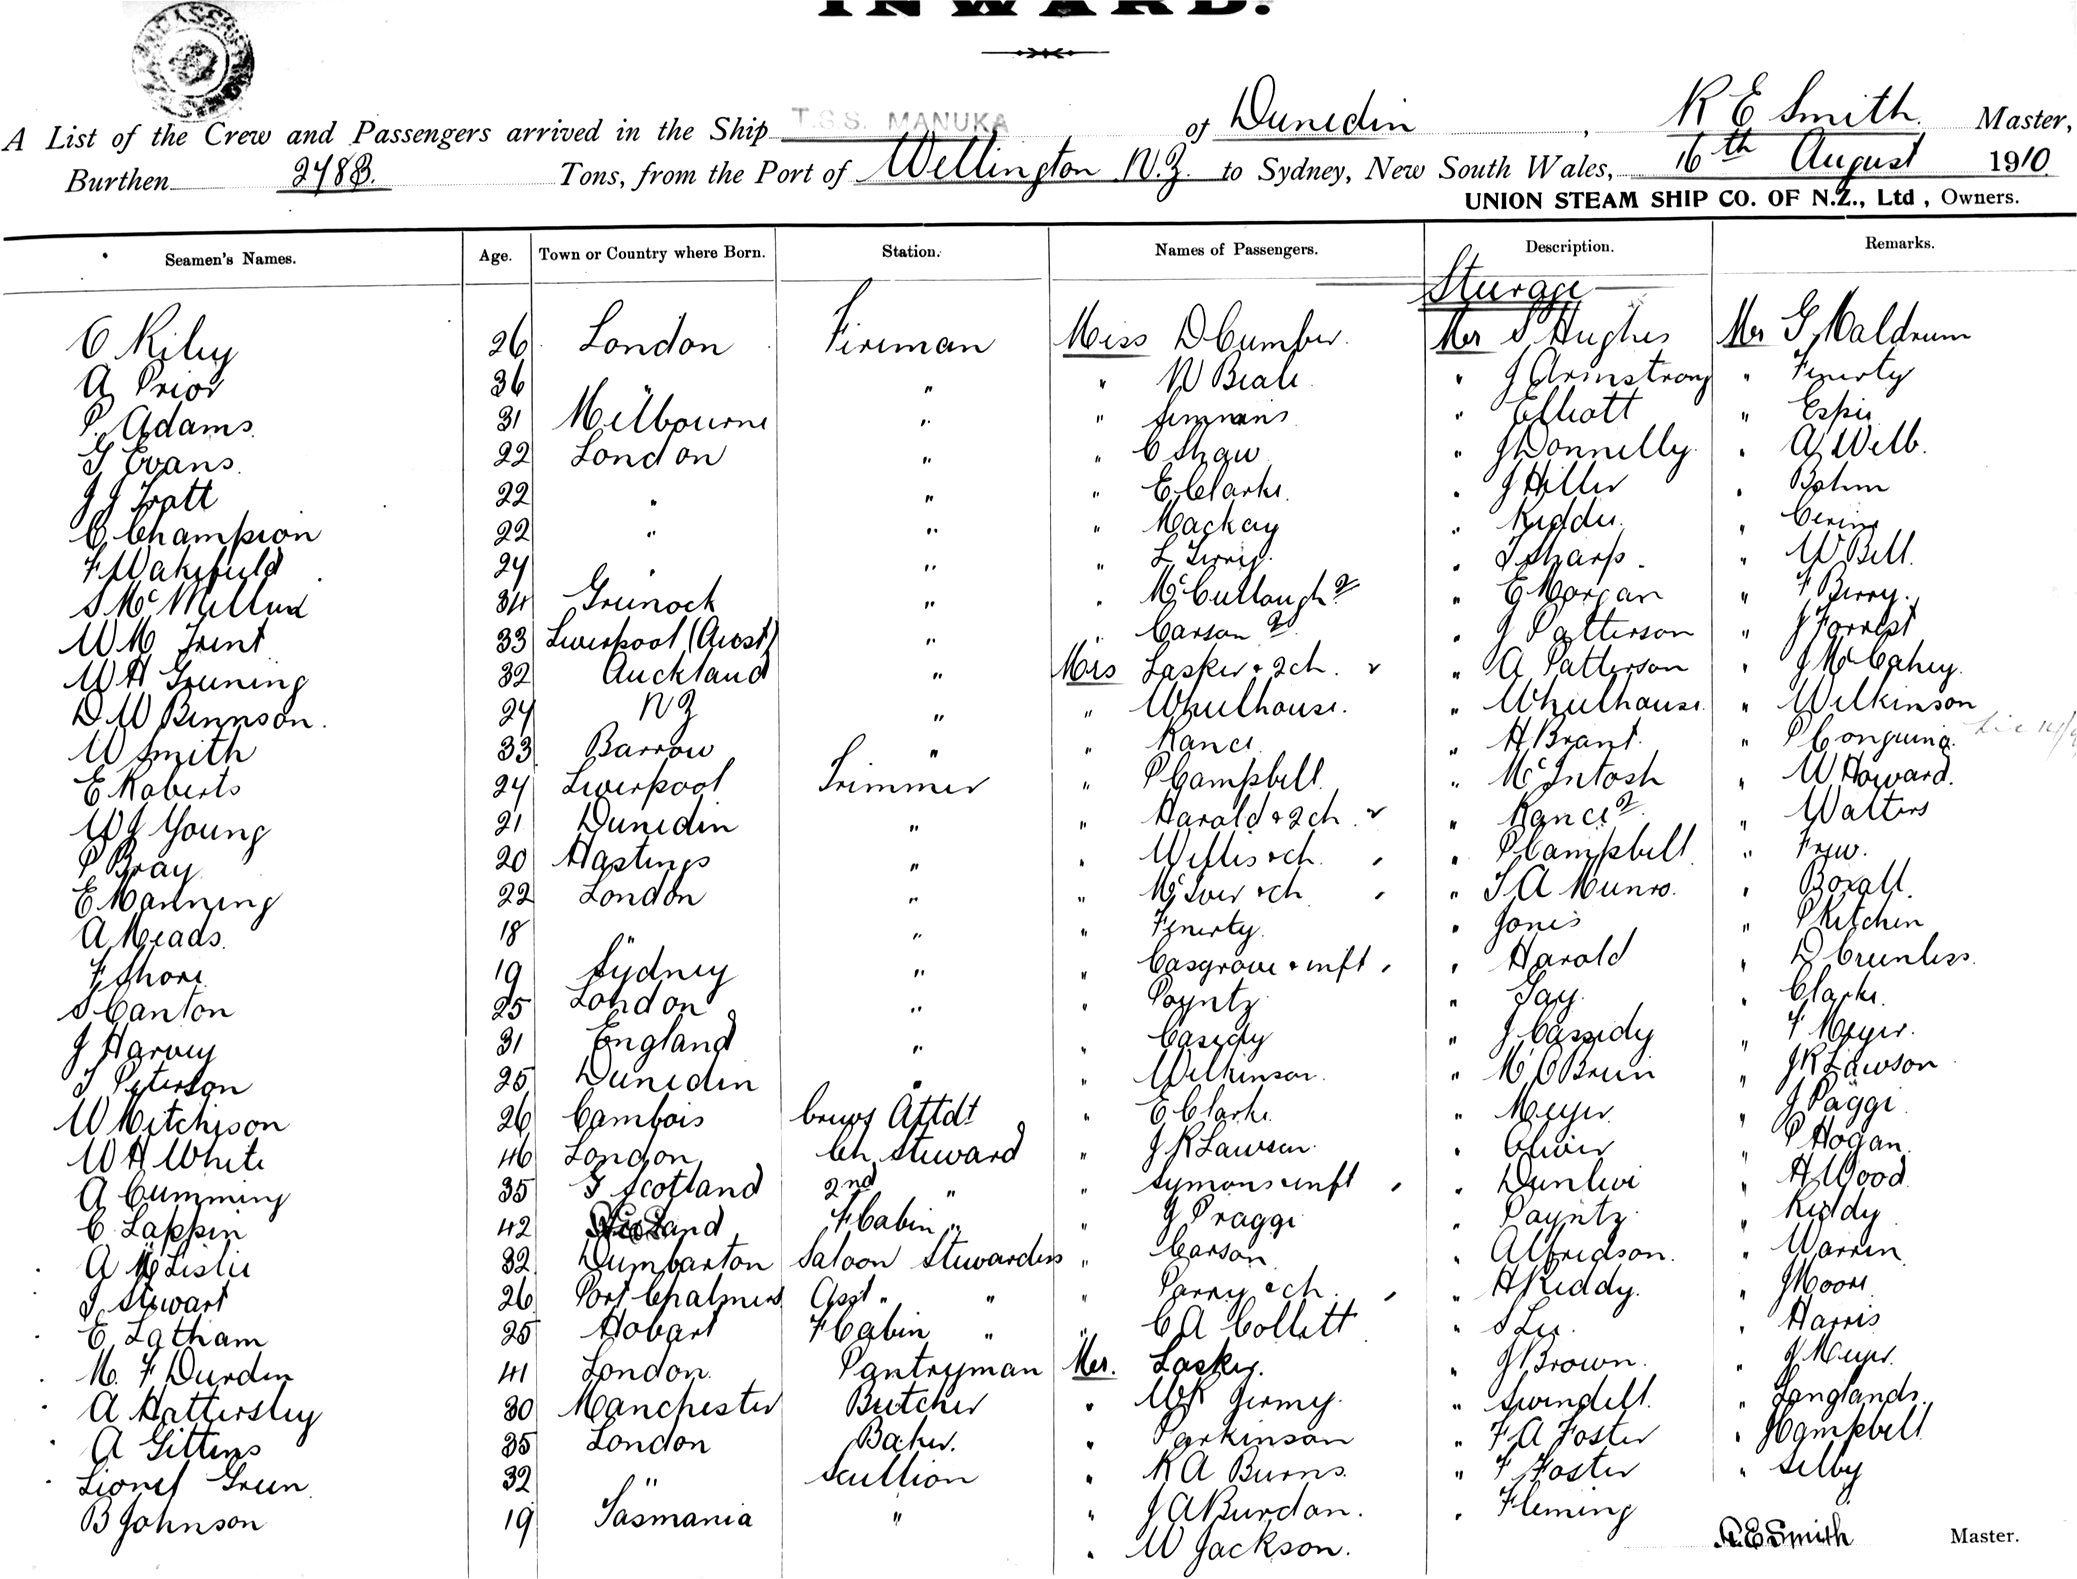 INWARD.
A List of the Crew and Passengers arrived in the Ship T.S.S. MANUKA of Dunedin, R E Smith Master,
Burthen 2488. Tons, from the Port of Wellington N.Z. to Sydney, New South Wales, 16th August 1910
UNION STEAM SHIP CO. OF N.Z., Ltd, Owners.
Seamen's Names. Age. Town or Country where Born. Station. Names of Passengers. Description. Remarks.
Sturage
C Riley 26 London Fireman Miss D Cumber. Mer S Hughes Mer G Maldrum
A Prior 36 " " " N Beale. " J Armstrong " Fenerty
P. Adams. 31 Melbourne " " Simmons " Elliott " Espie
G Evans. 22 London " " C Shaw " J Donnelly. " A Webb.
J J Pratt 22 " " " E Clarke. " J Hiller " Bohm
C Champion 22 " " " Mackay " Kiddie.
F Wakefield 24 " " " L " T Sharp. " W Bell.
S McMillan 34 Greenock " " McCullough 2 " E Morgan " F Berry.
W M Trent 33 Liverpool " " Carson 2 " J Patterson " J Forrest
W H Gruning 32 Auckland " Mrs Lasker + 2 ch. " A Patterson " J McCahey.
D W Bennson. 24 NZ " " Wheelhouse. " Wheelhouse. " Wilkinson
W Smith 33 Barrow " " Rance " H Brant. " P
E Roberts 24 Liverpool Trimmer " P Campbell. " McIntosh " W Howard.
W J Young 21 Dunedin " " Harald + 2 ch. " Rance 2 " Walters
P Bray 20 Hastings " " Willis + ch. " P Campbell " Frew.
E Manning 22 London " " McIver + ch " T A Munro. " Boxall.
A Meads. 18 " " " Fenerty. " Jones " P Kitchin
F Shore. 19 Sydney " " Casgrove + inft " Harold " D Crunless.
S Canton 25 London " " Poyntz " Gay. " Clarke.
J Harvey 31 England " " Casidy " J Cassidy " F Meyer.
T Peterson 25 Dunedin " " Wilkinson. " M O'Brien " J R Lawson
W Mitchison 26 Cambois Crews Attdt " E Clarke. " Meyer. " J Paggi
W H White 46 London Ch Steward " J R Lawson. " Oliver " P Hogan.
A Cumming 35 Scotland 2nd " " Symons + inft " Dunlevi " H Wood.
C. Lappin 42 F Cabin " " J Praggi " Poyntz. " Kiddy
A McLeslie 32 Dumbarton Saloon Stewardess " Carson " Alfredson. " Warren
J Stewart 26 Port Chalmers Asst " " " Parry + ch. " H Kiddy. " J Moore.
E. Latham 25 Hobart F Cabin " " C A Collett " S Lee. " Harris
M. F Durden 41 London. Pantryman Mer. Lasker. " J Brown. " J Meyer.
A Hattersley 30 Manchester Butcher " W R " Swindell. " Langlands.
A Gittens 35 London Baker. " Parkinson " F A Foster " J Campbell
Lionel Green 32 " Scullion " R A Burns. " F Foster " Selby
B Johnson 19 Tasmania " " J A Burdan. " Fleming
" W Jackson. R. E Smith Master.